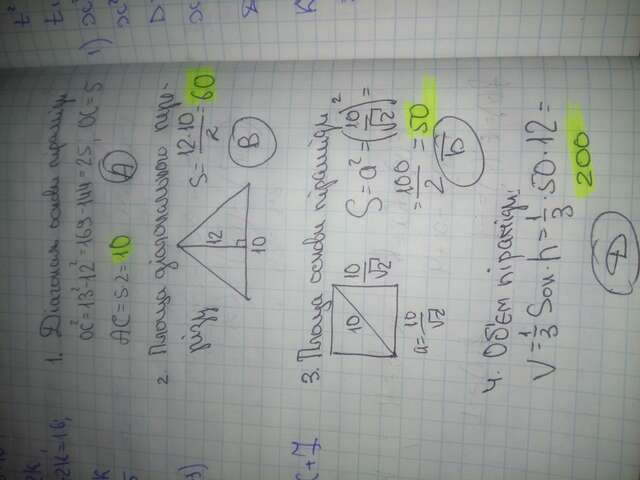 1. Діагональ основи піраміди
OC²=13²-12²=169-144=25, OC=5
AC=5·2=10 А
2. Площа діагонального пере-
різу
12
10
S=12·10/2=60
В
3. Площа основи піраміди
10
10/√2
a=10/√2
S=a²=(10/√2)²=
=100/2=50
Б
4. Об'єм піраміди:
V=1/3 Sосн·h=1/3·50·12=
200
Д